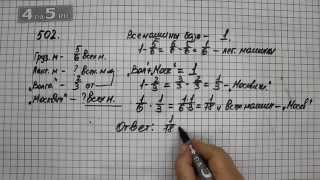 4 fto 5.ru
502.
Груз. м - 5/6 всех м.
Легк. м - ? Всех м.
"Волга" - 2/3 от
"Москвич" - ? Всех м.
Все машины базы - 1.
1 - 5/6 = 6/6 - 5/6 = 1/6 - лег. машины
"Волг+Моск" = 1
1 - 2/3 = 3/3 - 2/3 = 1/3 - "Москвич"
1/6 · 1/3 = 1·1/6·3 = 1/18 ч всех машин - "Моск"
Ответ: 1/18